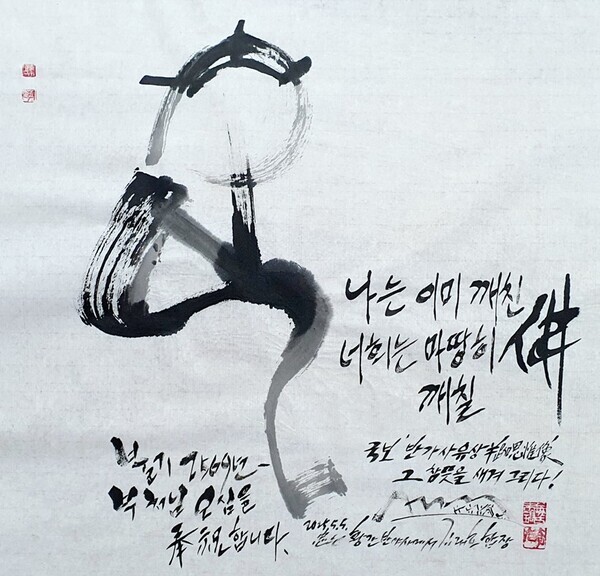 나는 이미 깨친
너희는 마땅히 佛
깨칠
국보 '반가사유상 半跏思惟像'
그 참뜻을 새겨 그리다!
불기 2569년
부처님 오심을
奉祝합니다.
2025.5.5.